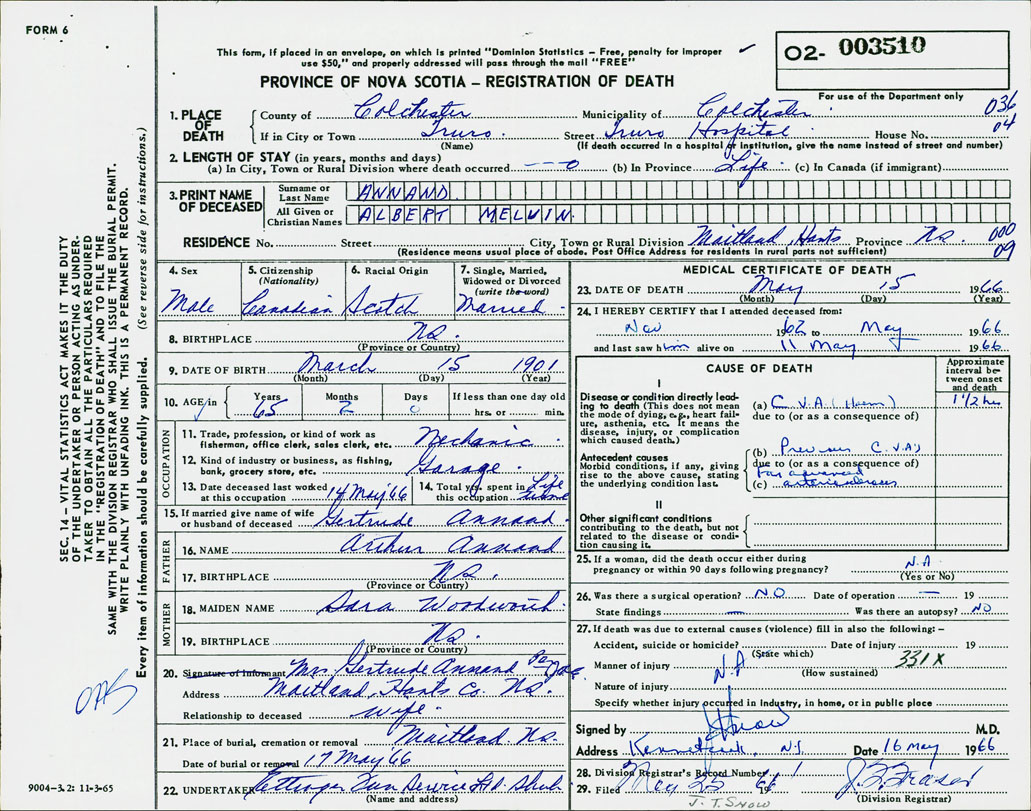 FORM 6
This form, if placed in an envelope, on which is printed "Dominion Statistics – Free, penalty for improper
use $50," and properly addressed will pass through the mail "FREE"
O2- 003510
PROVINCE OF NOVA SCOTIA – REGISTRATION OF DEATH
For use of the Department only
1. PLACE OF DEATH
County of Colchester Municipality of Colchester 036
If in City or Town Truro Street Truro Hospital House No. 04
(Name) (If death occurred in a hospital or institution, give the name instead of street and number)
2. LENGTH OF STAY (in years, months and days)
(a) In City, Town or Rural Division where death occurred (b) In Province Life (c) In Canada (if immigrant)
3. PRINT NAME OF DECEASED
Surname or Last Name ANNAND
All Given or Christian Names ALBERT MELVIN
RESIDENCE No. Street City, Town or Rural Division Maitland, Hants Province N.S. 000
(Residence means usual place of abode. Post Office Address for residents in rural parts not sufficient) 09
4. Sex Male
5. Citizenship (Nationality) Canadian
6. Racial Origin Scotch
7. Single, Married, Widowed or Divorced (write the word) Married
8. BIRTHPLACE N.S.
(Province or Country)
9. DATE OF BIRTH March 15 1901
(Month) (Day) (Year)
10. AGE in Years 65 Months 2 Days 0 If less than one day old
hrs. or min.
OCCUPATION
11. Trade, profession, or kind of work as
fisherman, office clerk, sales clerk, etc. Mechanic
12. Kind of industry or business, as fishing,
bank, grocery store, etc. Garage
13. Date deceased last worked
at this occupation 14 May '66
14. Total yrs. spent in
this occupation Life time
15. If married give name of wife
or husband of deceased Gertrude Annand
FATHER
16. NAME Arthur Annand
17. BIRTHPLACE N.S.
(Province or Country)
MOTHER
18. MAIDEN NAME Sara Woodworth
19. BIRTHPLACE N.S.
(Province or Country)
20. Signature of Informant Mrs Gertrude Annand Per
Address Maitland, Hants Co. N.S.
Relationship to deceased wife
21. Place of burial, cremation or removal Maitland N.S.
Date of burial or removal 17 May '66
22. UNDERTAKER Ettinger Fun Service Ltd Shub
(Name and address)
MEDICAL CERTIFICATE OF DEATH
23. DATE OF DEATH May 15 1966
(Month) (Day) (Year)
24. I HEREBY CERTIFY that I attended deceased from:
Nov 1962 to May 1966
and last saw him alive on 11 May 1966
CAUSE OF DEATH
Approximate interval between onset and death
I
Disease or condition directly leading
to death (This does not mean
the mode of dying, e.g., heart failure,
asthenia, etc. It means the
disease, injury, or complication
which caused death.)
(a) C.V.A. (Haem) 1 1/2 hrs
due to (or as a consequence of)
Antecedent causes
Morbid conditions, if any, giving
rise to the above cause, stating
the underlying condition last.
(b) Previous C.V.A's
due to (or as a consequence of)
far advanced
(c) arteriosclerosis
II
Other significant conditions
contributing to the death, but not
related to the disease or condition
causing it.
25. If a woman, did the death occur either during
pregnancy or within 90 days following pregnancy? N.A
(Yes or No)
26. Was there a surgical operation? NO Date of operation — 19
State findings — Was there an autopsy? NO
27. If death was due to external causes (violence) fill in also the following: –
Accident, suicide or homicide? Date of injury 19
(State which)
Manner of injury N.A 331X
(How sustained)
Nature of injury
Specify whether injury occurred in Industry, in home, or in public place
Signed by M.D.
Address Kennetcook N.S Date 16 May 1966
28. Division Registrar's Record Number 1
29. Filed May 25 1966
(Division Registrar)
J. T. SNOW
SEC. 14 – VITAL STATISTICS ACT MAKES IT THE DUTY
OF THE UNDERTAKER OR PERSON ACTING AS UNDER-
TAKER TO OBTAIN ALL THE PARTICULARS REQUIRED
IN THE "REGISTRATION OF DEATH" AND TO FILE THE
SAME WITH THE DIVISION REGISTRAR WHO SHALL ISSUE THE BURIAL PERMIT.
WRITE PLAINLY WITH UNFADING INK. THIS IS A PERMANENT RECORD.
Every item of information should be carefully supplied. (See reverse side for instructions.)
9004-3.2: 11-3-65